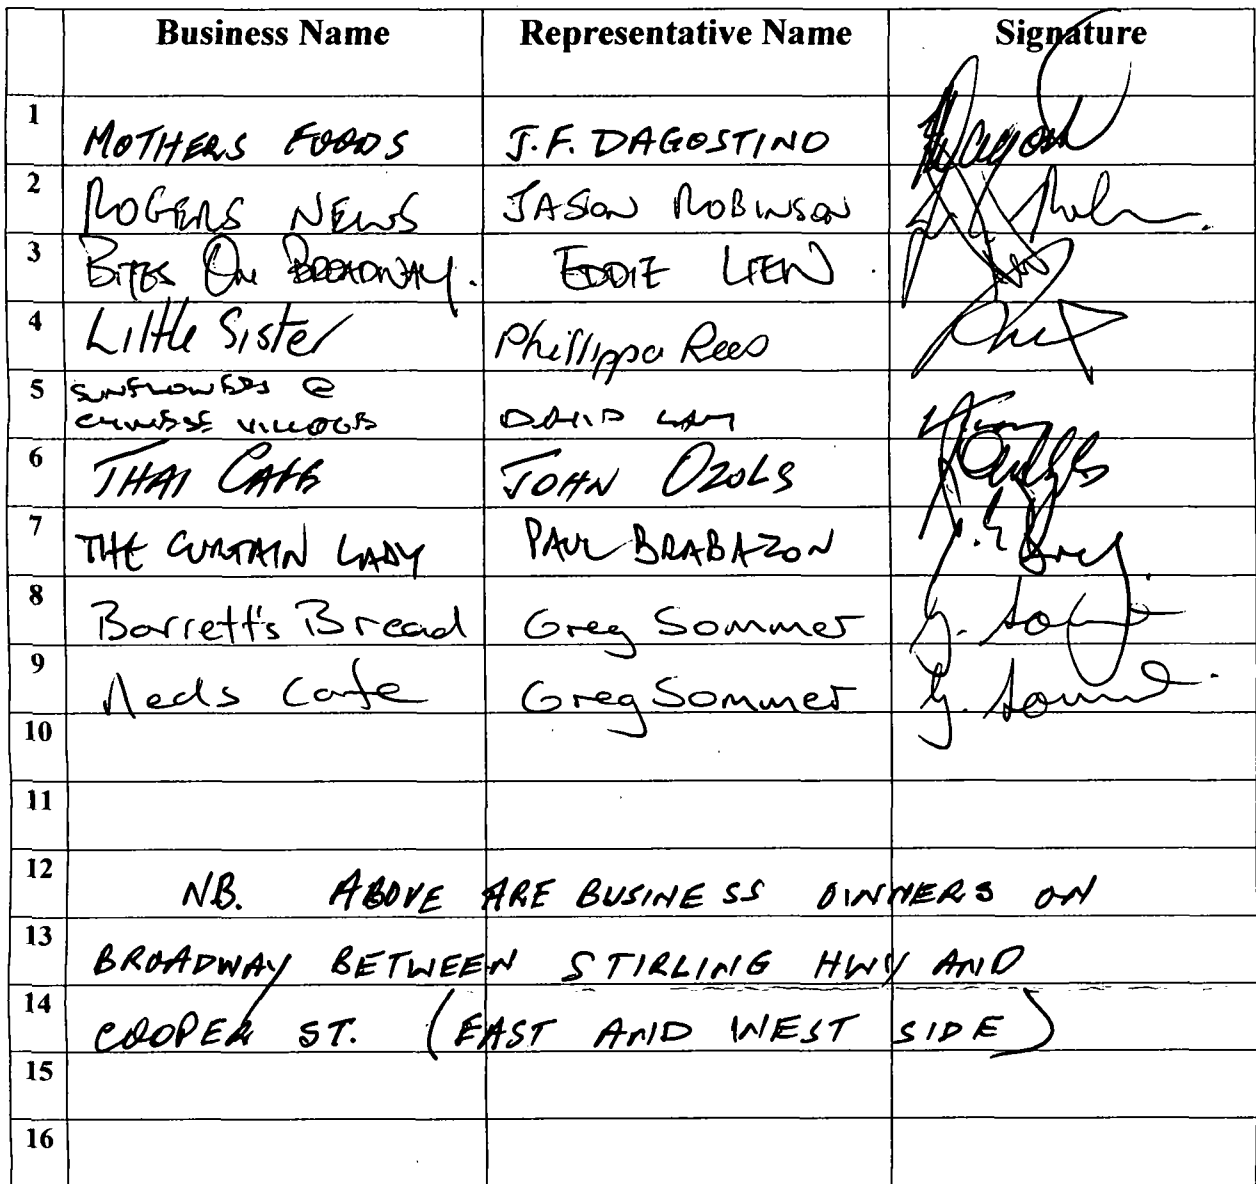 Business Name Representative Name Signature
1 MOTHERS FOODS J.F. DAGOSTINO
2 ROGERS NEWS JASON ROBINSON
3 BITES On BROADWAY. EDDIE LIEW
4 Little Sister Phillippa Rees
5 SUNFLOWERS @
CHINESE VILLAGE DAVID LAM
6 THAI CAFE JOHN OZOLS
7 THE CURTAIN LADY PAUL BRABAZON
8 Barrett's Bread Greg Sommer G. Sommer
9 Neds Cafe Greg Sommer G. Sommer
10
11
12 NB. ABOVE ARE BUSINESS OWNERS ON
13 BROADWAY BETWEEN STIRLING HWY AND
14 COOPER ST. (EAST AND WEST SIDE)
15
16